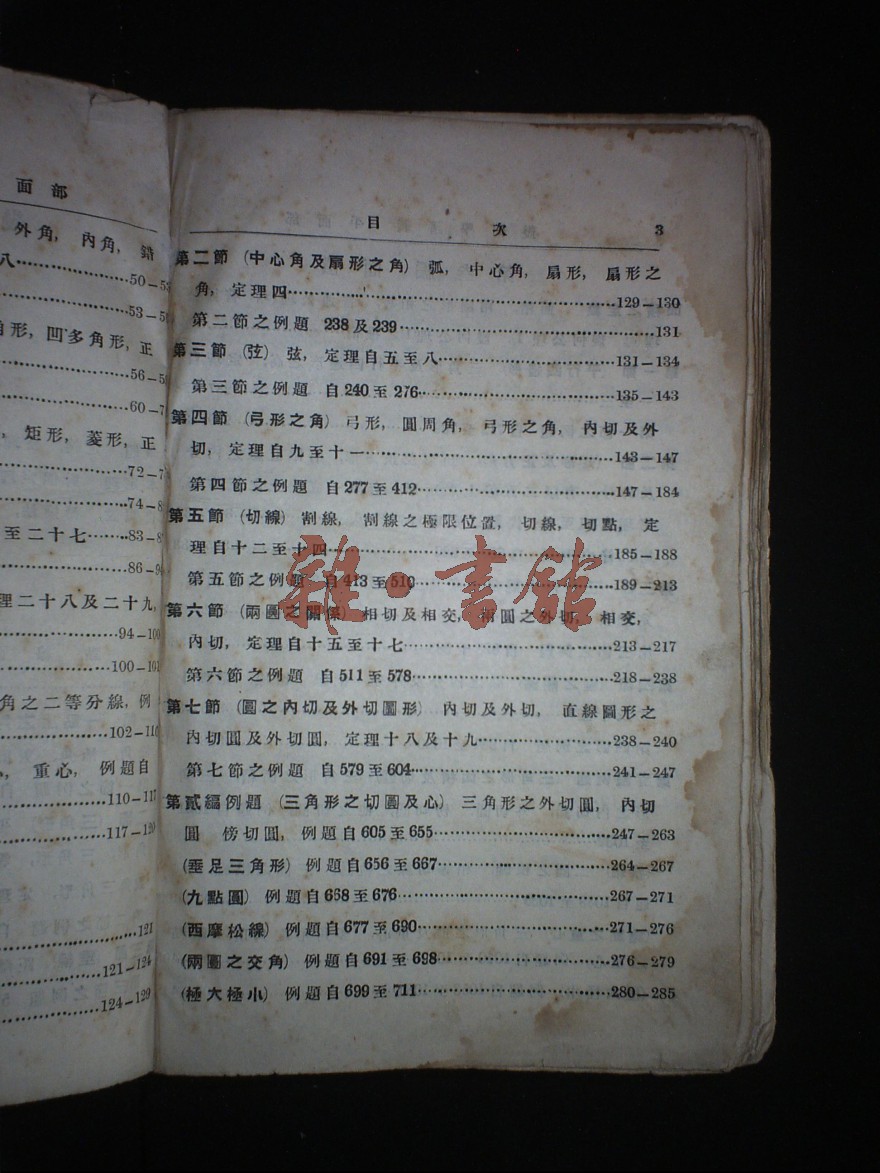 面部
外角, 內角, 錯
八……50—5
……53—5
角形, 凹多角形, 正
……56—5
……60—7
, 矩形, 菱形, 正
……72—7
……74—8
至二十七……83—8
……86—9
理二十八及二十九,
……94—100
……100—10
角之二等分線, 例
……102—110
, 重心, 例題自
……110—117
……117—120
……121
……121—124
……124—129
目 次 3
第二節 (中心角及扇形之角) 弧, 中心角, 扇形, 扇形之
角, 定理四……129—130
第二節之例題 238及239……131
第三節 (弦) 弦, 定理自五至八……131—134
第三節之例題 自240至276……135—143
第四節 (弓形之角) 弓形, 圓周角, 弓形之角, 內切及外
切, 定理自九至十一……143—147
第四節之例題 自277至412……147—184
第五節 (切線) 割線, 割線之極限位置, 切線, 切點, 定
理自十二至十四……185—188
第五節之例題 自413至510……189—213
第六節 (兩圓之關係) 相切及相交, 兩圓之外切, 相交,
內切, 定理自十五至十七……213—217
第六節之例題 自511至578……218—238
第七節 (圓之內切及外切圖形) 內切及外切, 直線圖形之
內切圓及外切圓, 定理十八及十九……238—240
第七節之例題 自579至604……241—247
第貳編例題 (三角形之切圓及心) 三角形之外切圓, 內切
圓 傍切圓, 例題自605至655……247—263
(垂足三角形) 例題自656至667……264—267
(九點圓) 例題自668至676……267—271
(西摩松線) 例題自677至690……271—276
(兩圓之交角) 例題自691至698……276—279
(極大極小) 例題自699至711……280—285
雜·書館